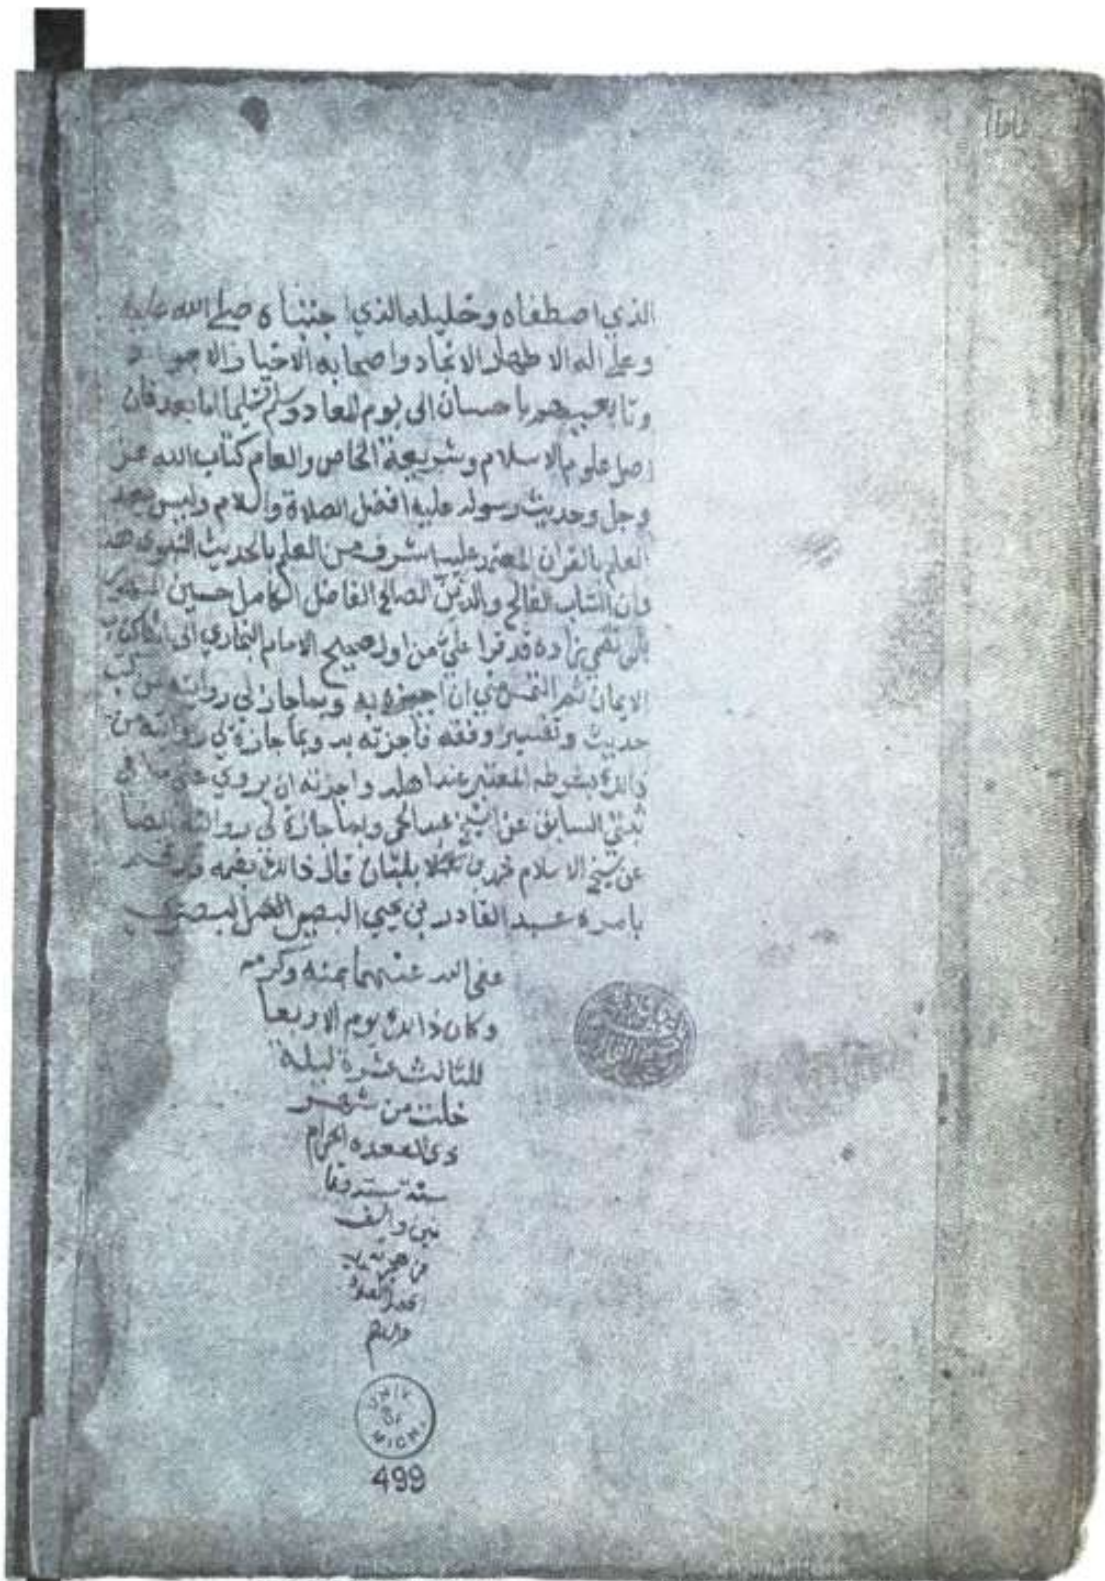 166
الذي اصطفاه وخليله الذي اجتباه صلى الله عليه
وعلى اله الاطهار الانجاد واصحابه الاخيار
وتابعيهم باحسان الى يوم المعاد وسلم تسليما اما بعد فان
اصل علوم الاسلام وشريعة الخاص والعام كتاب الله عز
وجل وحديث رسوله عليه افضل الصلاة والسلام وليس بعد
العلم بالقران المعتمد عليه اشرف من العلم بالحديث النبوي هذا
وان الشاب الفالح والدين الصالح الفاضل الكامل حسين
زاده قد قرا علي من اول صحيح الامام البخاري الى كتاب
الايمان ثم التمس مني ان اجيزه به وبما جاز لي روايته من كتب
حديث وتفسير وفقه فاجزته به وبما جازة لي روايته من
ذالك بشرطه المعتبر عند اهله واجزته ان يروي عني ما في
ثبتي السابق عن الشيخ عبد الحي وبما جازة لي روايته ايضا
عن شيخ الاسلام قال ذالك بفمه ورقم
بامره عبد القادر بن يحيى البصير البصري
عفى الله عنهما بمنه وكرمه
وكان ذالك يوم الاربعا
للثالث عشرة ليلة
خلت من شهر
ذي القعدة الحرام
سنة ستة وثما
نين والف
من هجرته
افضل الصلاة
والسلام
UNIV. OF MICH.
499